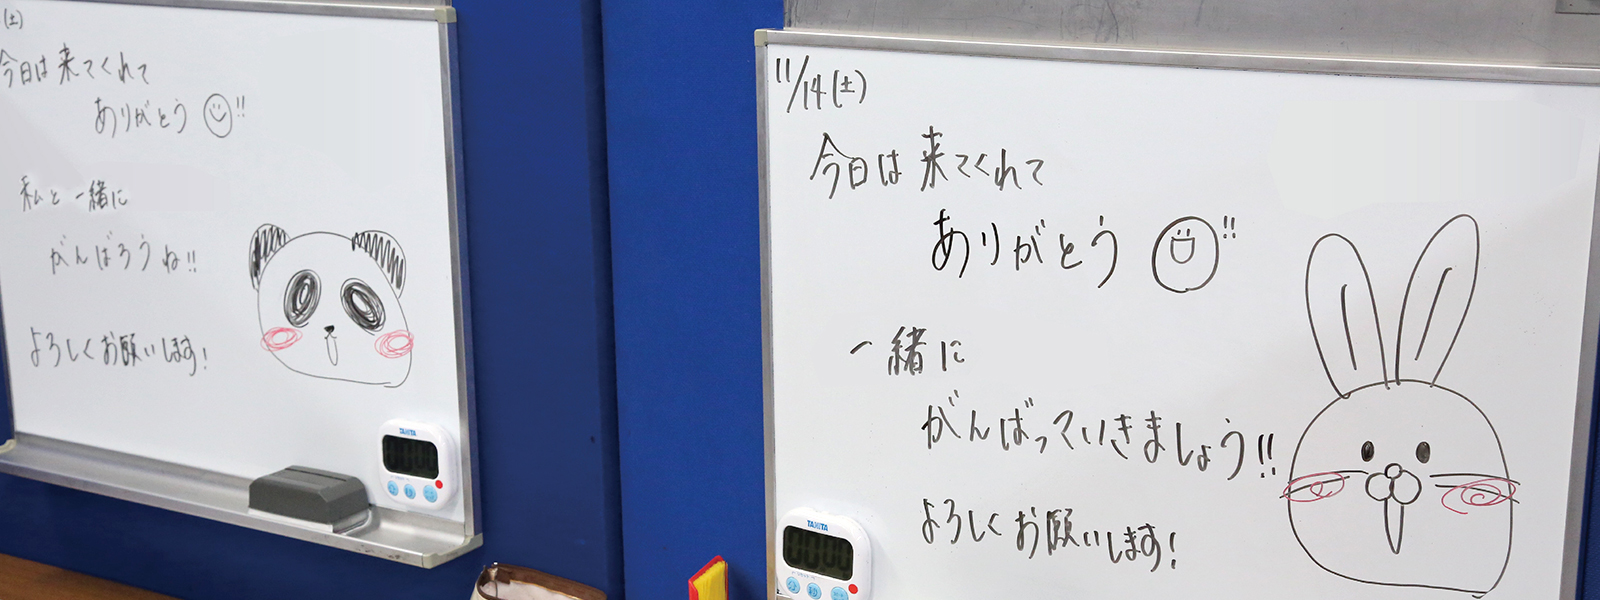 (土)
今日は来てくれて
ありがとう!!
私と一緒に
がんばろうね!!
よろしくお願いします!
TANITA
11/14(土)
今日は来てくれて
ありがとう!!
一緒に
がんばっていきましょう!!
よろしくお願いします!
TANITA
00:00
分 秒